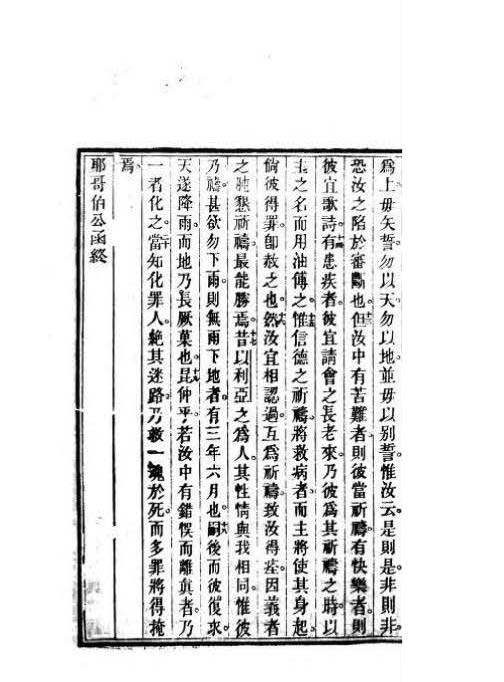 為上毋矢誓勿以天勿以地並毋以別誓惟汝云是則是非則非
恐汝之陷於審斷也但汝中有苦難者則彼當祈禱有快樂者則
彼宜歌詩有患疾者彼宜請會之長老來乃彼為其祈禱之時以
主之名而用油傅之惟信德之祈禱將救病者而主將使其身起
倘彼得罪卽赦之也然汝宜相認過互為祈禱致汝得痊因義者
之肫懇祈禱最能勝焉昔以利亞之為人其性情與我相同惟彼
乃禱甚欲勿下雨則無雨下地者有三年六月也嗣後而彼復求
天遂降雨而地乃長厥菓也昆仲乎若汝中有錯悞而離真者乃
一者化之當知化罪人絶其迷路乃救一魂於死而多罪將得掩
焉
耶哥伯公函終